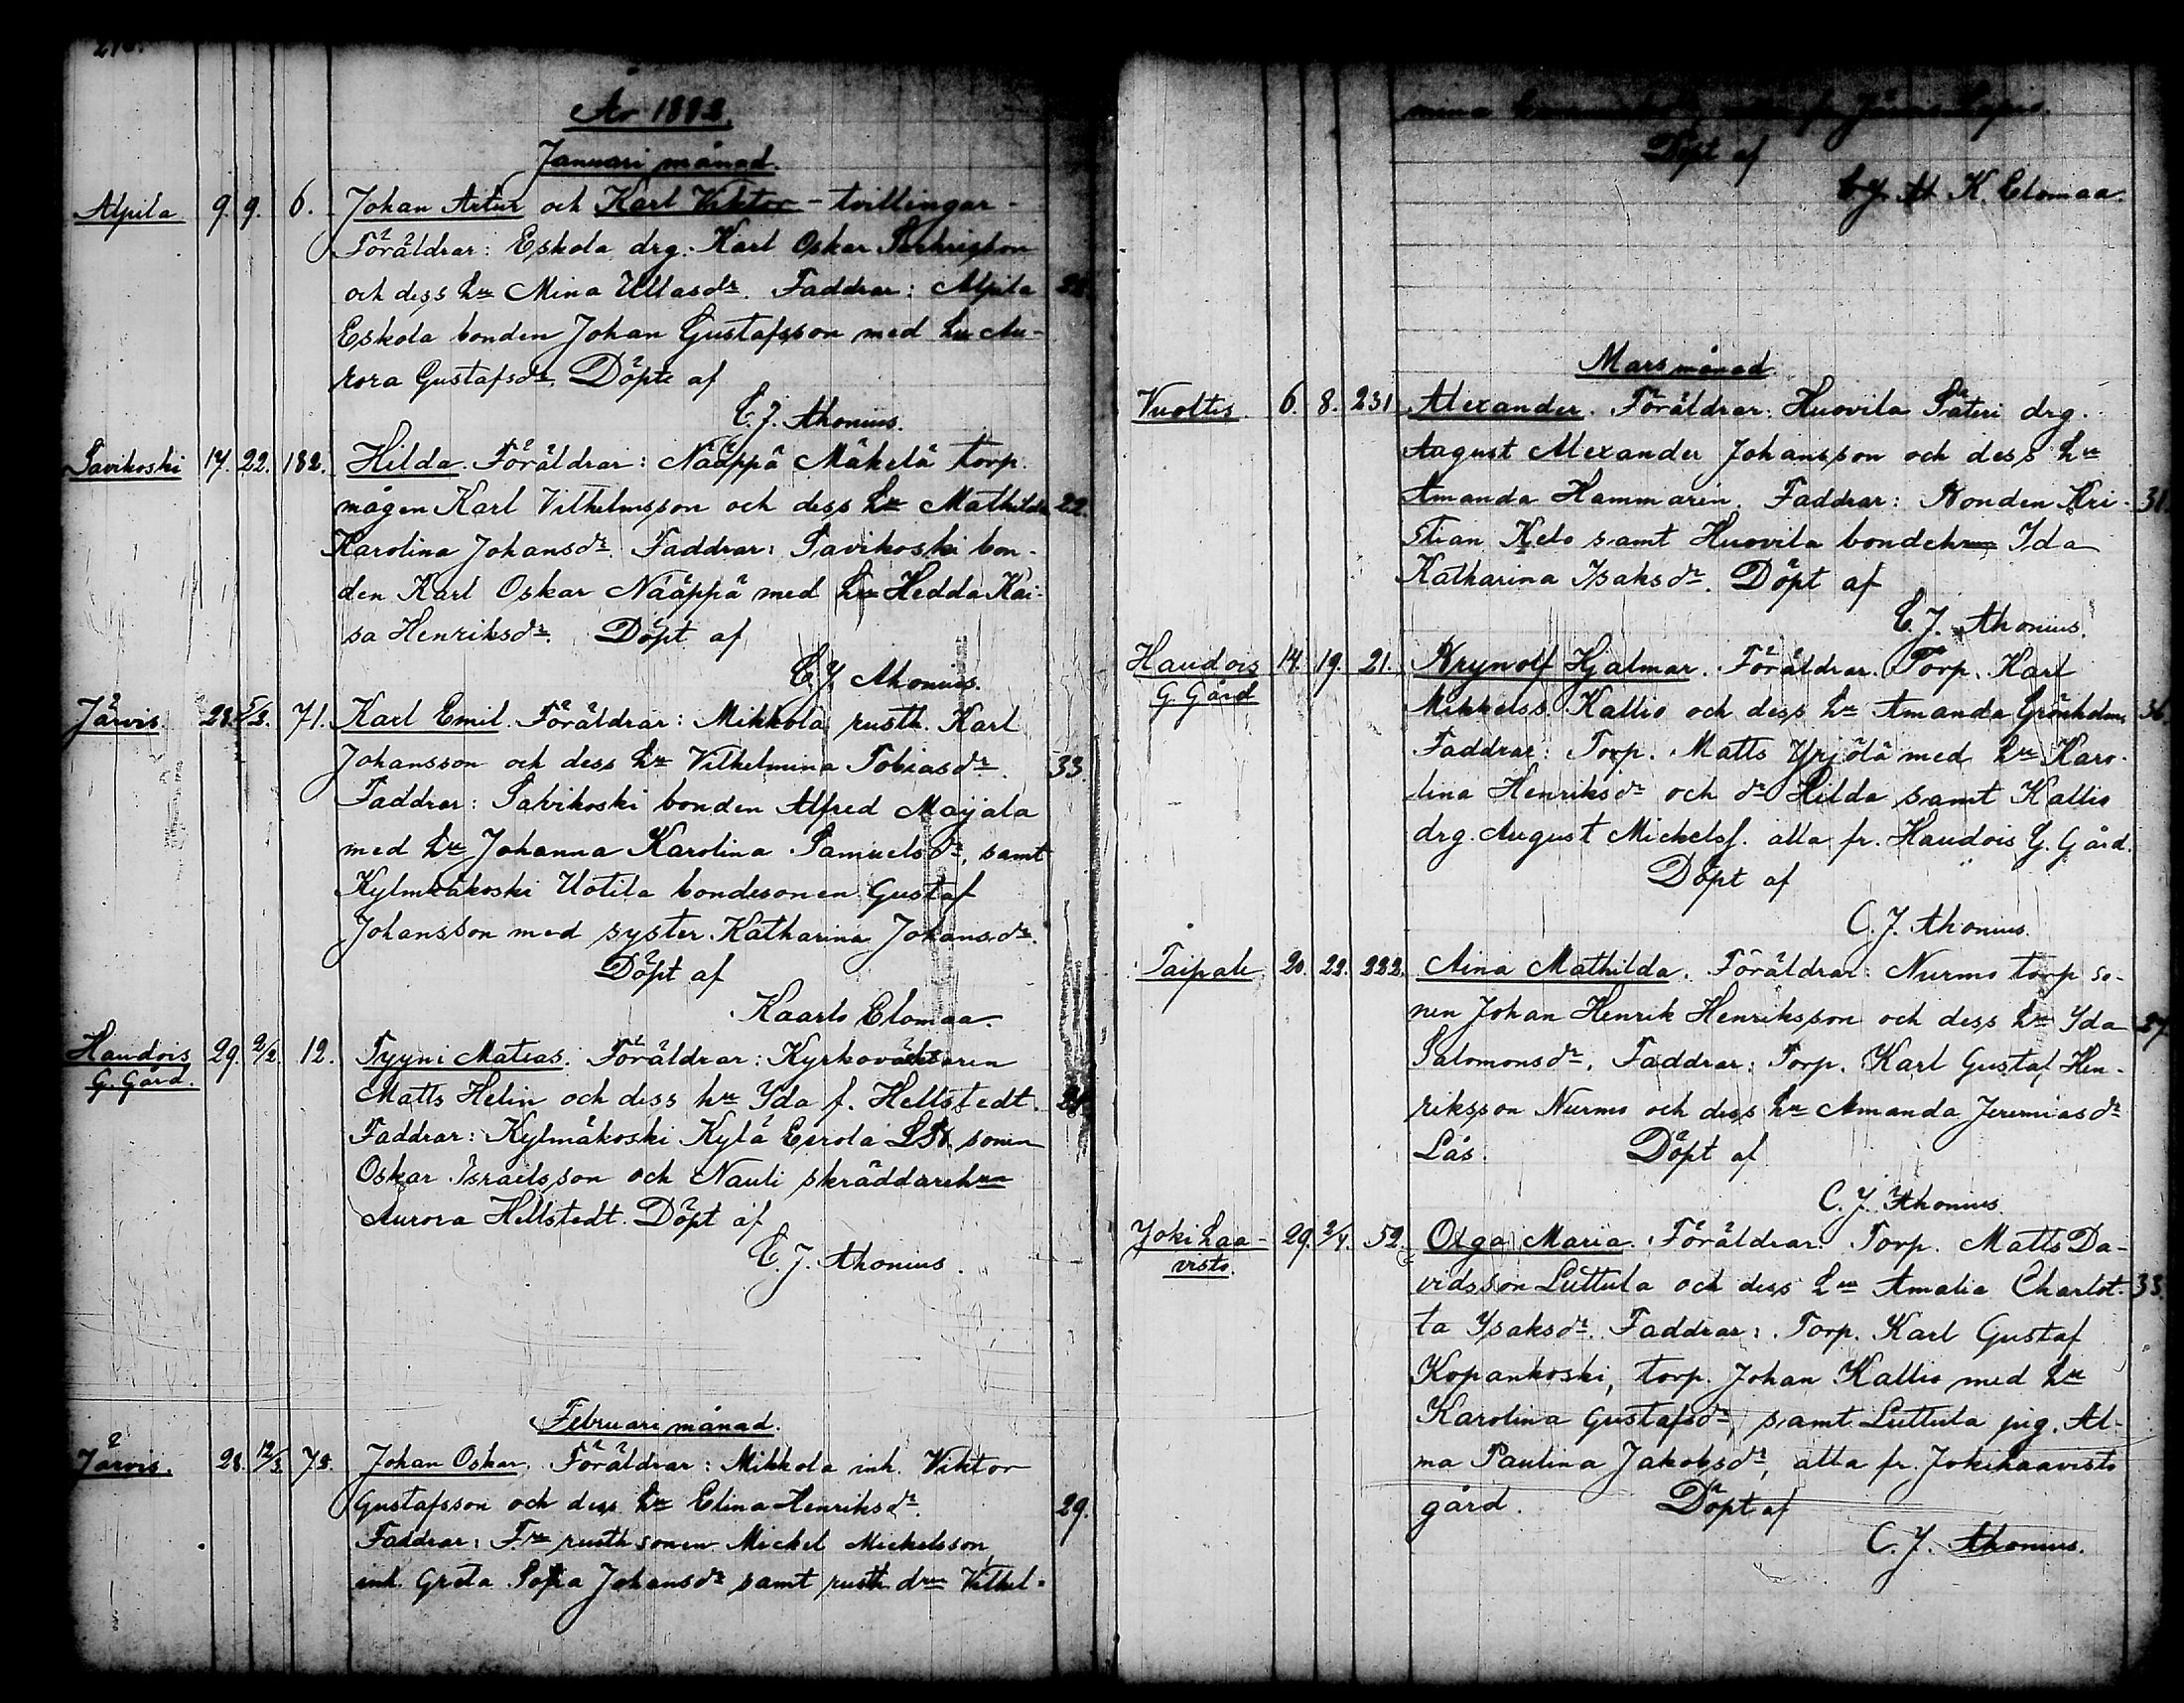 År 1883.
Januari månad.
Alpila 9. 9. 6. Johan Artur och Karl Viktor - tvillingar -
Föräldrar: Eskola drg. Karl Oskar
och dess hu Mina Ullasdr. Faddrar: Alpila
Eskola bonden Johan Gustafsson med hu Au-
rora Gustafsdr. Döpte af
C. J. Ahonius.
Savikoski 17. 22. 182. Hilda. Föräldrar: Nääppä Mäkelä torp.
mågen Karl Vilhelmsson och dess hu Mathilda 22.
Karolina Johansdr. Faddrar: Savikoski bon-
den Karl Oskar Nääppä med hu Hedda Kai-
sa Henriksdr. Döpt af
C. J. Ahonius.
Järvis 28. 5/2. 71. Karl Emil. Föräldrar: Mikkola rusth. Karl
Johansson och dess hu Vilhelmina Tobiasdr. 33.
Faddrar: Savikoski bonden Alfred Maijala
med hu Johanna Karolina Samuelsdr, samt
Kylmäkoski Uotila bondesonen Gustaf
Johansson med syster Katharina Johansdr.
Döpt af
Kaarlo Elomaa.
Haudois G. Gård. 29. 2/2. 12. Tyyni Matias. Föräldrar: Kyrkoväktaren
Matts Helin och dess hu Ida f. Hellstedt.
Faddrar: Kylmäkoski Kylä Eerola sonen
Oskar Israelsson och Nauli skräddarehun
Aurora Hellstedt. Döpt af
C. J. Ahonius.
Februari månad.
Järvis. 28. 12/3 75. Johan Oskar. Föräldrar: Mikkola inh. Viktor
Gustafsson och dess hu Elina Henriksdr. 29.
Faddrar: Fru rusth sonen Mickel Mickelsson,
inh. Greta Sofia Johansdr samt rusth. drn Vilhel-
mina fr. Järvis
Döpt af
K. Elomaa.
Mars månad
Vuoltis. 6. 8. 231 Alexander. Föräldrar: Huovila Säteri drg.
August Alexander Johansson och dess hu
Amanda Hammarén. Faddrar: Bonden Kri- 31.
stian Kelo samt Huovila bondehun Ida
Katharina Isaksdr. Döpt af
C. J. Ahonius.
Haudois G. Gård 14. 19. 21. Brynolf Hjalmar. Föräldrar. Torp. Karl
Mikkelss. Kallio och dess hu Amanda Grönholm, 36.
Faddrar: Torp. Matts Yrjölä med hu Karo-
lina Henriksdr och dr Hilda samt Kallio
drg. August Mickelss. alla fr. Haudois G. Gård.
Döpt af
C. J. Ahonius.
Taipale 20. 22. 222. Aina Mathilda. Föräldrar: Nurmo torp so-
nen Johan Henrik Henriksson och dess hu Ida 27.
Salomonsdr. Faddrar: Torp. Karl Gustaf Hen-
riksson Nurmo och dess hu Amanda Jeremiasdr
Lås. Döpt af
C. J. Ahonius.
Jokihaa-
visto. 29. 2/4. 52. Olga Maria. Föräldrar: Torp. Matts Da-
vidsson Luttula och dess hu Amalia Charlot- 33.
ta Isaksdr. Faddrar: Torp. Karl Gustaf
Kopankoski, torp. Johan Kallio med hu
Karolina Gustafsdr, samt Luttula pig. Al-
ma Paulina Jakobsdr, alla fr. Jokihaavisto
gård. Döpt af
C. J. Ahonius.